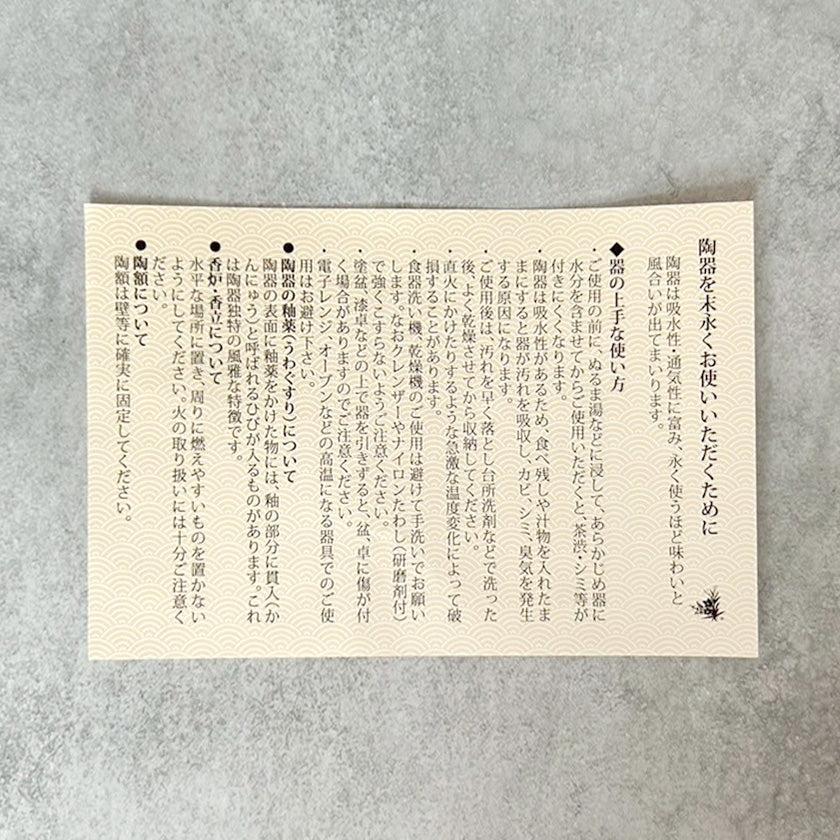 陶器を末永くお使いいただくために
陶器は吸水性・通気性に富み、永く使うほど味わいと
風合いが出てまいります。
◆器の上手な使い方
・ご使用の前に、ぬるま湯などに浸して、あらかじめ器に
水分を含ませてからご使用いただくと、茶渋・シミ等が
付きにくくなります。
・陶器は吸水性があるため、食べ残しや汁物を入れたま
まにすると器が汚れを吸収し、カビ、シミ、臭気を発生
する原因になります。
・ご使用後は、汚れを早く落とし台所洗剤などで洗った
後、よく乾燥させてから収納してください。
・直火にかけたりするような急激な温度変化によって破
損することがあります。
・食器洗い機、乾燥機のご使用は避けて手洗いでお願い
します。なおクレンザーやナイロンたわし(研磨剤付)
で強くこすらないようご注意ください。
・塗盆、漆卓などの上で器を引きずると、盆、卓に傷が付
く場合がありますのでご注意ください。
・電子レンジ、オーブンなどの高温になる器具でのご使
用はお避け下さい。
●陶器の釉薬(うわぐすり)について
陶器の表面に釉薬をかけた物には、釉の部分に貫入(か
んにゅう)と呼ばれるひびが入るものがあります。これ
は陶器独特の風雅な特徴です。
●香炉・香立について
水平な場所に置き、周りに燃えやすいものを置かない
ようにしてください。火の取り扱いには十分ご注意く
ださい。
●陶額について
陶額は壁等に確実に固定してください。